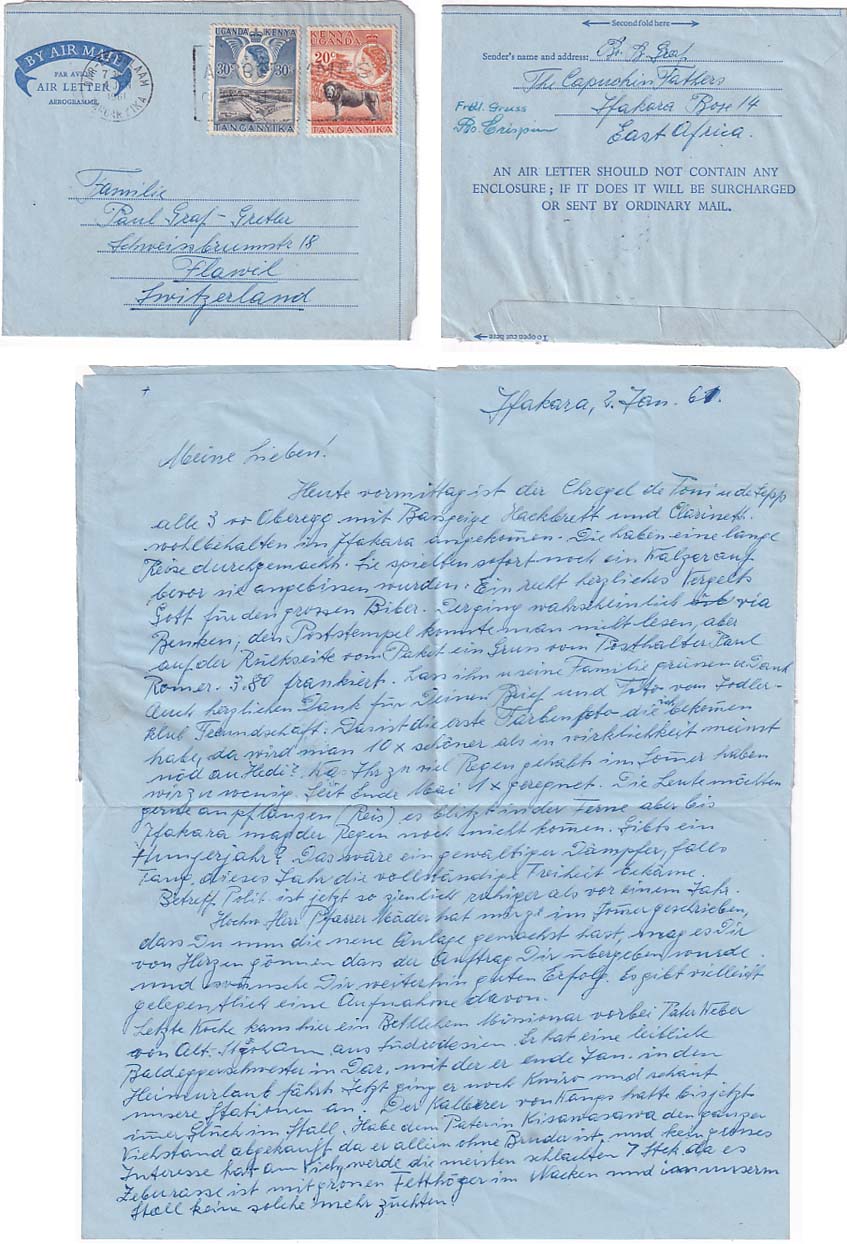 BY AIR MAIL
PAR AVION
AIR LETTER
AEROGRAMME
UGANDA KENYA
30c 30c
TANGANYIKA
KENYA
UGANDA
20c
TANGANYIKA
Familie
Paul Graf-Greter
Schweissbrunnstr 18
Flawil
Switzerland
Second fold here
Sender's name and address: Br. B. Graf
The Capuchin Fathers
Ifakara Box 14
East Africa.
Frdl. Gruss
Br. Crispin
AN AIR LETTER SHOULD NOT CONTAIN ANY
ENCLOSURE; IF IT DOES IT WILL BE SURCHARGED
OR SENT BY ORDINARY MAIL.
To open cut here
+
Ifakara, 2. Jan. 61.
Meine Lieben!
Heute vormittag ist der Chregel de Toni u de Sepp
alle 3 vo Oberegg mit Bassgeige Hackbrett und Clarinett.
wohlbehalten in Ifakara angekomen. Die haben eine lange
Reise durchgemacht. Sie spielten sofort noch ein Walzer auf
bevor sie angebissen wurden. Ein recht herzliches Vergelts
Gott für den grossen Biber. Der ging wahrscheinlich via
Benken, den Poststempel konnte man nicht lesen, aber
auf der Rückseite vom Paket ein Gruss vom Posthalter Paul
Romer. 3.80 frankiert. Lass ihn u seine Familie grüssen u Dank
Auch herzlichen Dank für Deinen Brief und Foto vom Jodler-
klub Freundschaft. Das ist die erste Farbenfoto die ich bekomen
habe, da wird man 10 x schöner als in wirklichkeit meinst
nöd au Hedi? Was Ihr zu viel Regen gehabt im Somer haben
wir zu wenig. Seit Ende Mai 1 x geregnet. Die Leute möchten
gerne anpflanzen (Reis) es blitzt in der Ferne aber bis
Ifakara mag der Regen noch nicht komen. Gibts ein
Hungerjahr? Das wäre ein gewaltiger Dämpfer, falls
Tang. dieses Jahr die vollständige Freiheit bekäme.
Betreff Polit. ist jetzt so ziemlich ruhiger als vor einem Jahr.
Hochw. Herr Pfarrer Mäder hat mir im Somer geschrieben,
dass Du nun die neue Anlage gemacht hast, mag es Dir
von Herzen gönnen dass der Auftrag Dir übergeben wurde.
und wünsche Dir weiterhin guten Erfolg. Es gibt vielleicht
gelegentlich eine Aufnahme davon.
Letzte Woche kam hier ein Bethlehem Missionar vorbei Pater Weber
von Alt-St. Johann aus Südrodesien. Er hat eine leibliche
Baldeggerschwester in Dar. mit der er ende Jan. in den
Heimurlaub fährt. Jetzt ging er noch Kwiro und schaut
unsere Stationen an. Der Kalberer von Wangs hatte bis jetzt
imer Glück im Stall. Habe dem Pater in Kisawasawa den ganzen
Viehstand abgekauft da er allein ohne Bruder ist, und kein grosses
Interesse hat am Vieh, werde die meisten schlachten 7 Stck. da es
Zeburasse ist mit grossen Fetthöger im Nacken und in unserm
Stall keine solche mehr züchten!